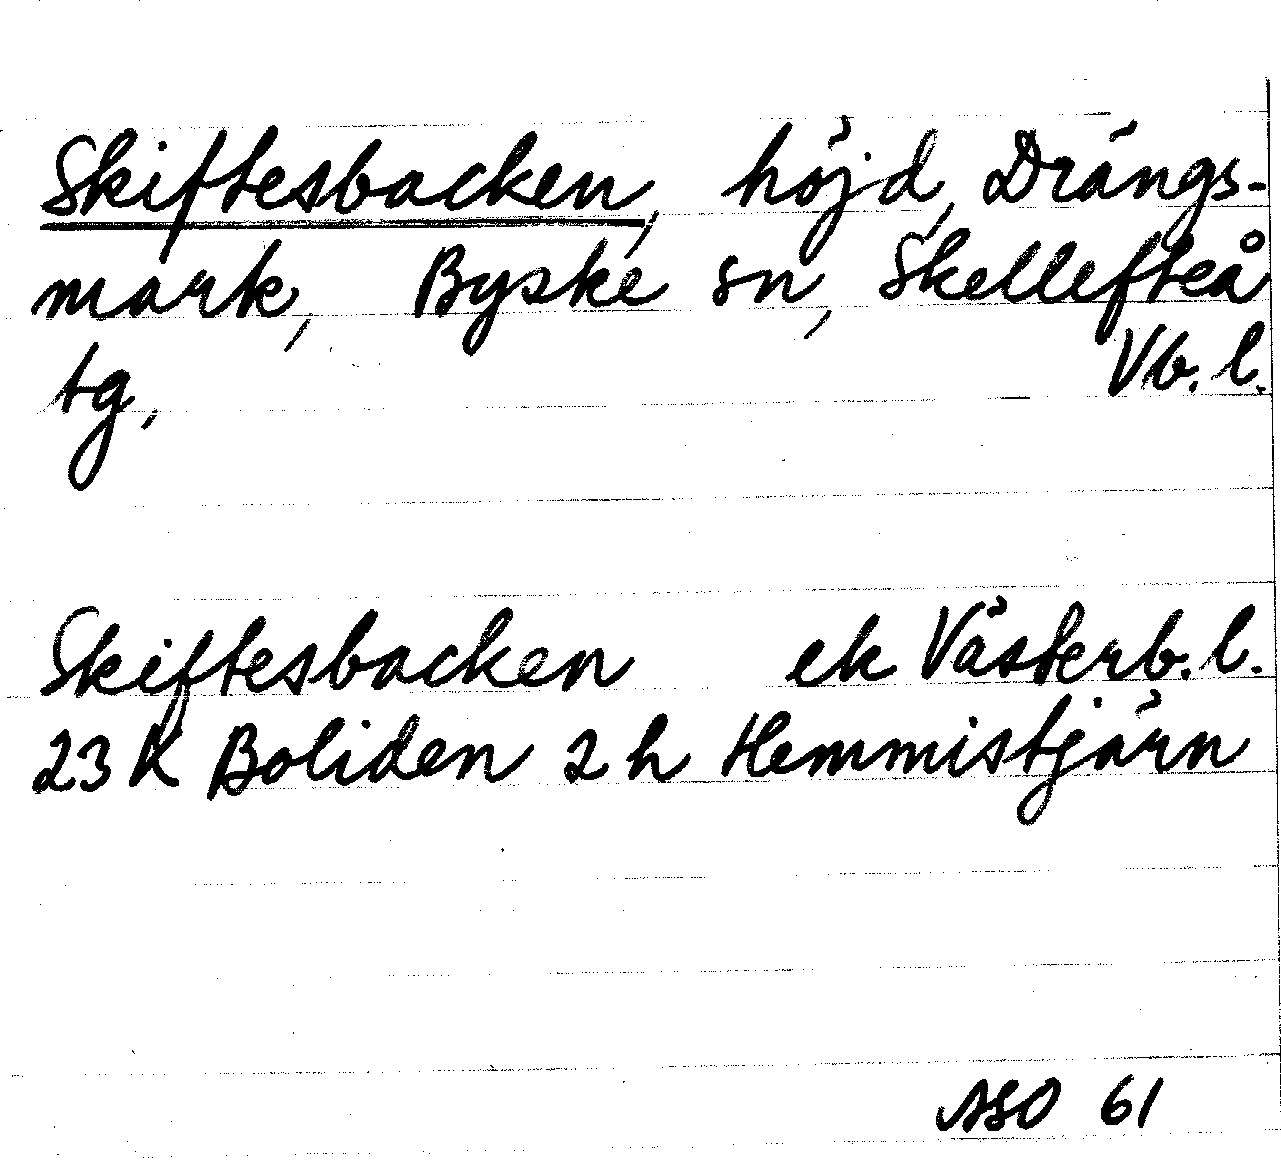 Skiftesbacken, höjd, Drängs-
mark, Byske sn, Skellefteå
tg, Vb. l.
Skiftesbacken ek Västerb. l.
23 K Boliden 2 h Hemmistjärn
ASO 61